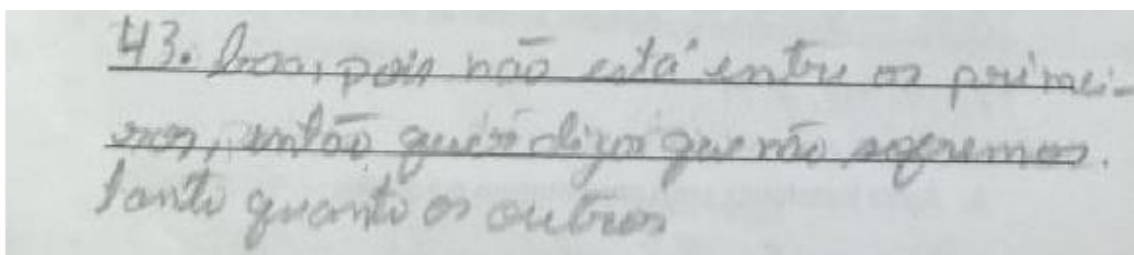 43. bom, pois não está entre os primei-
ros, então queri dizer que não soferemos.
tanto quanto os outros